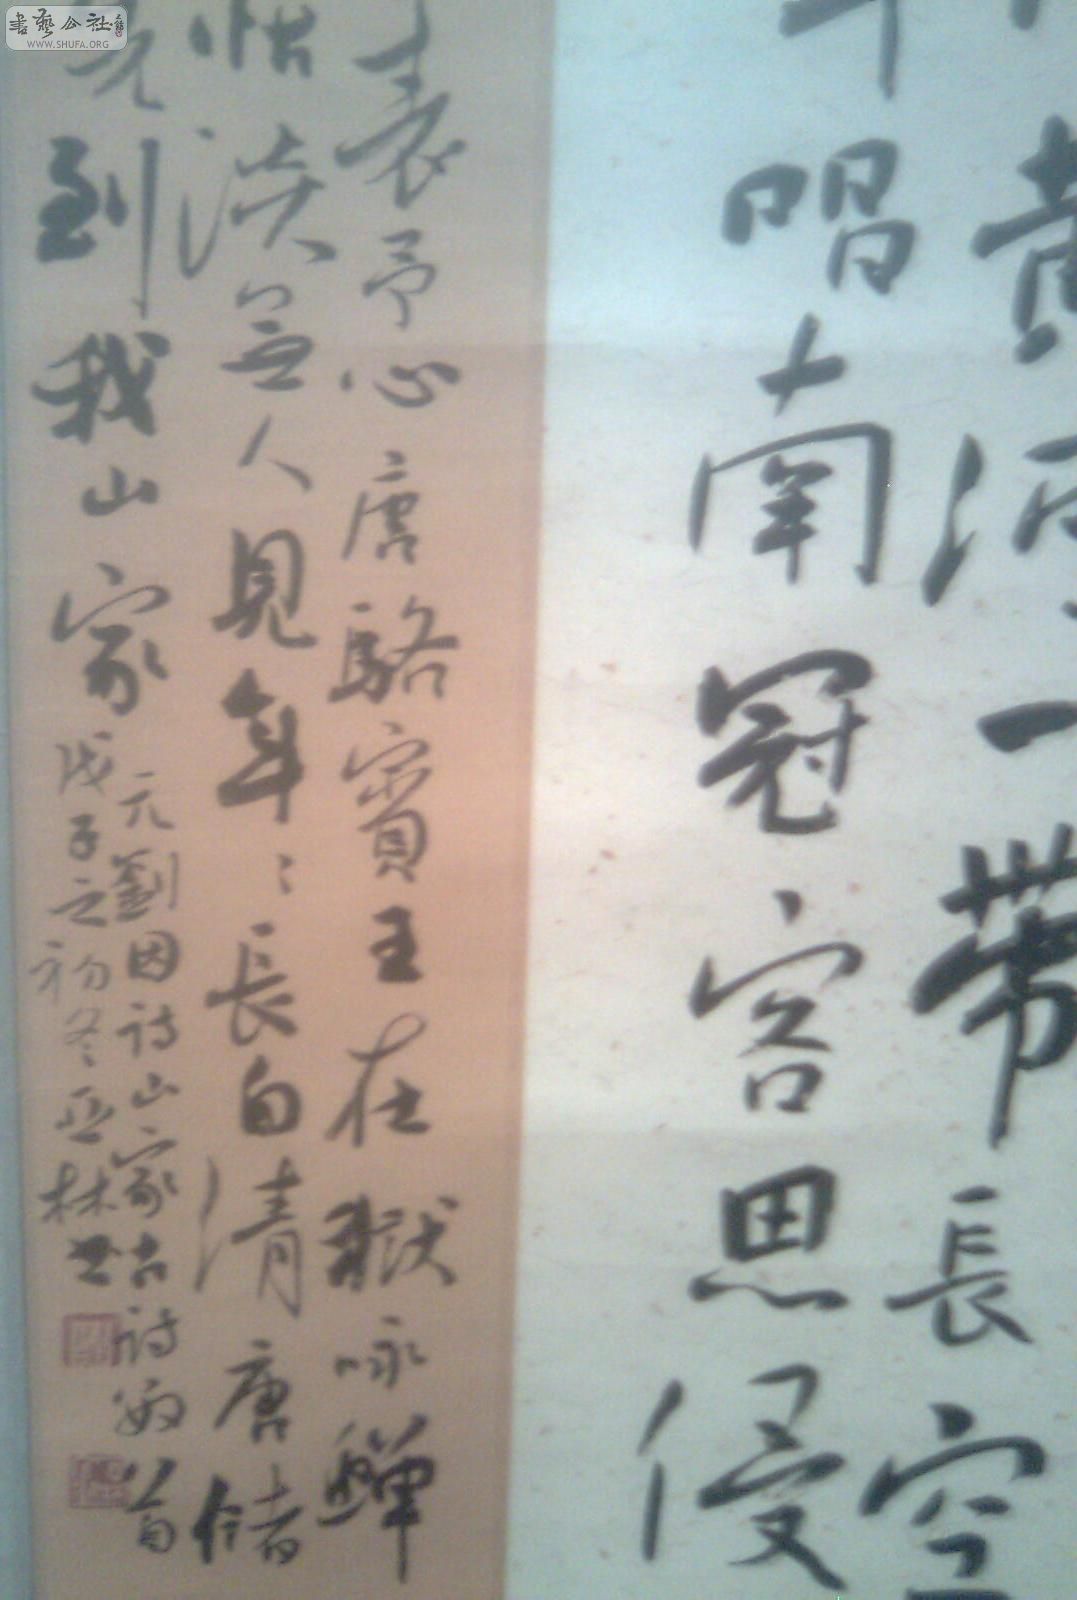 書藝公社
WWW.SHUFA.ORG
黄河一帶長空
唱南冠客思侵
表予心唐駱賓王在獄咏蟬
淡無人見年〻長自清唐儲
到我山家
元劉因詩山家古詩數首
戊子之初冬亞林書